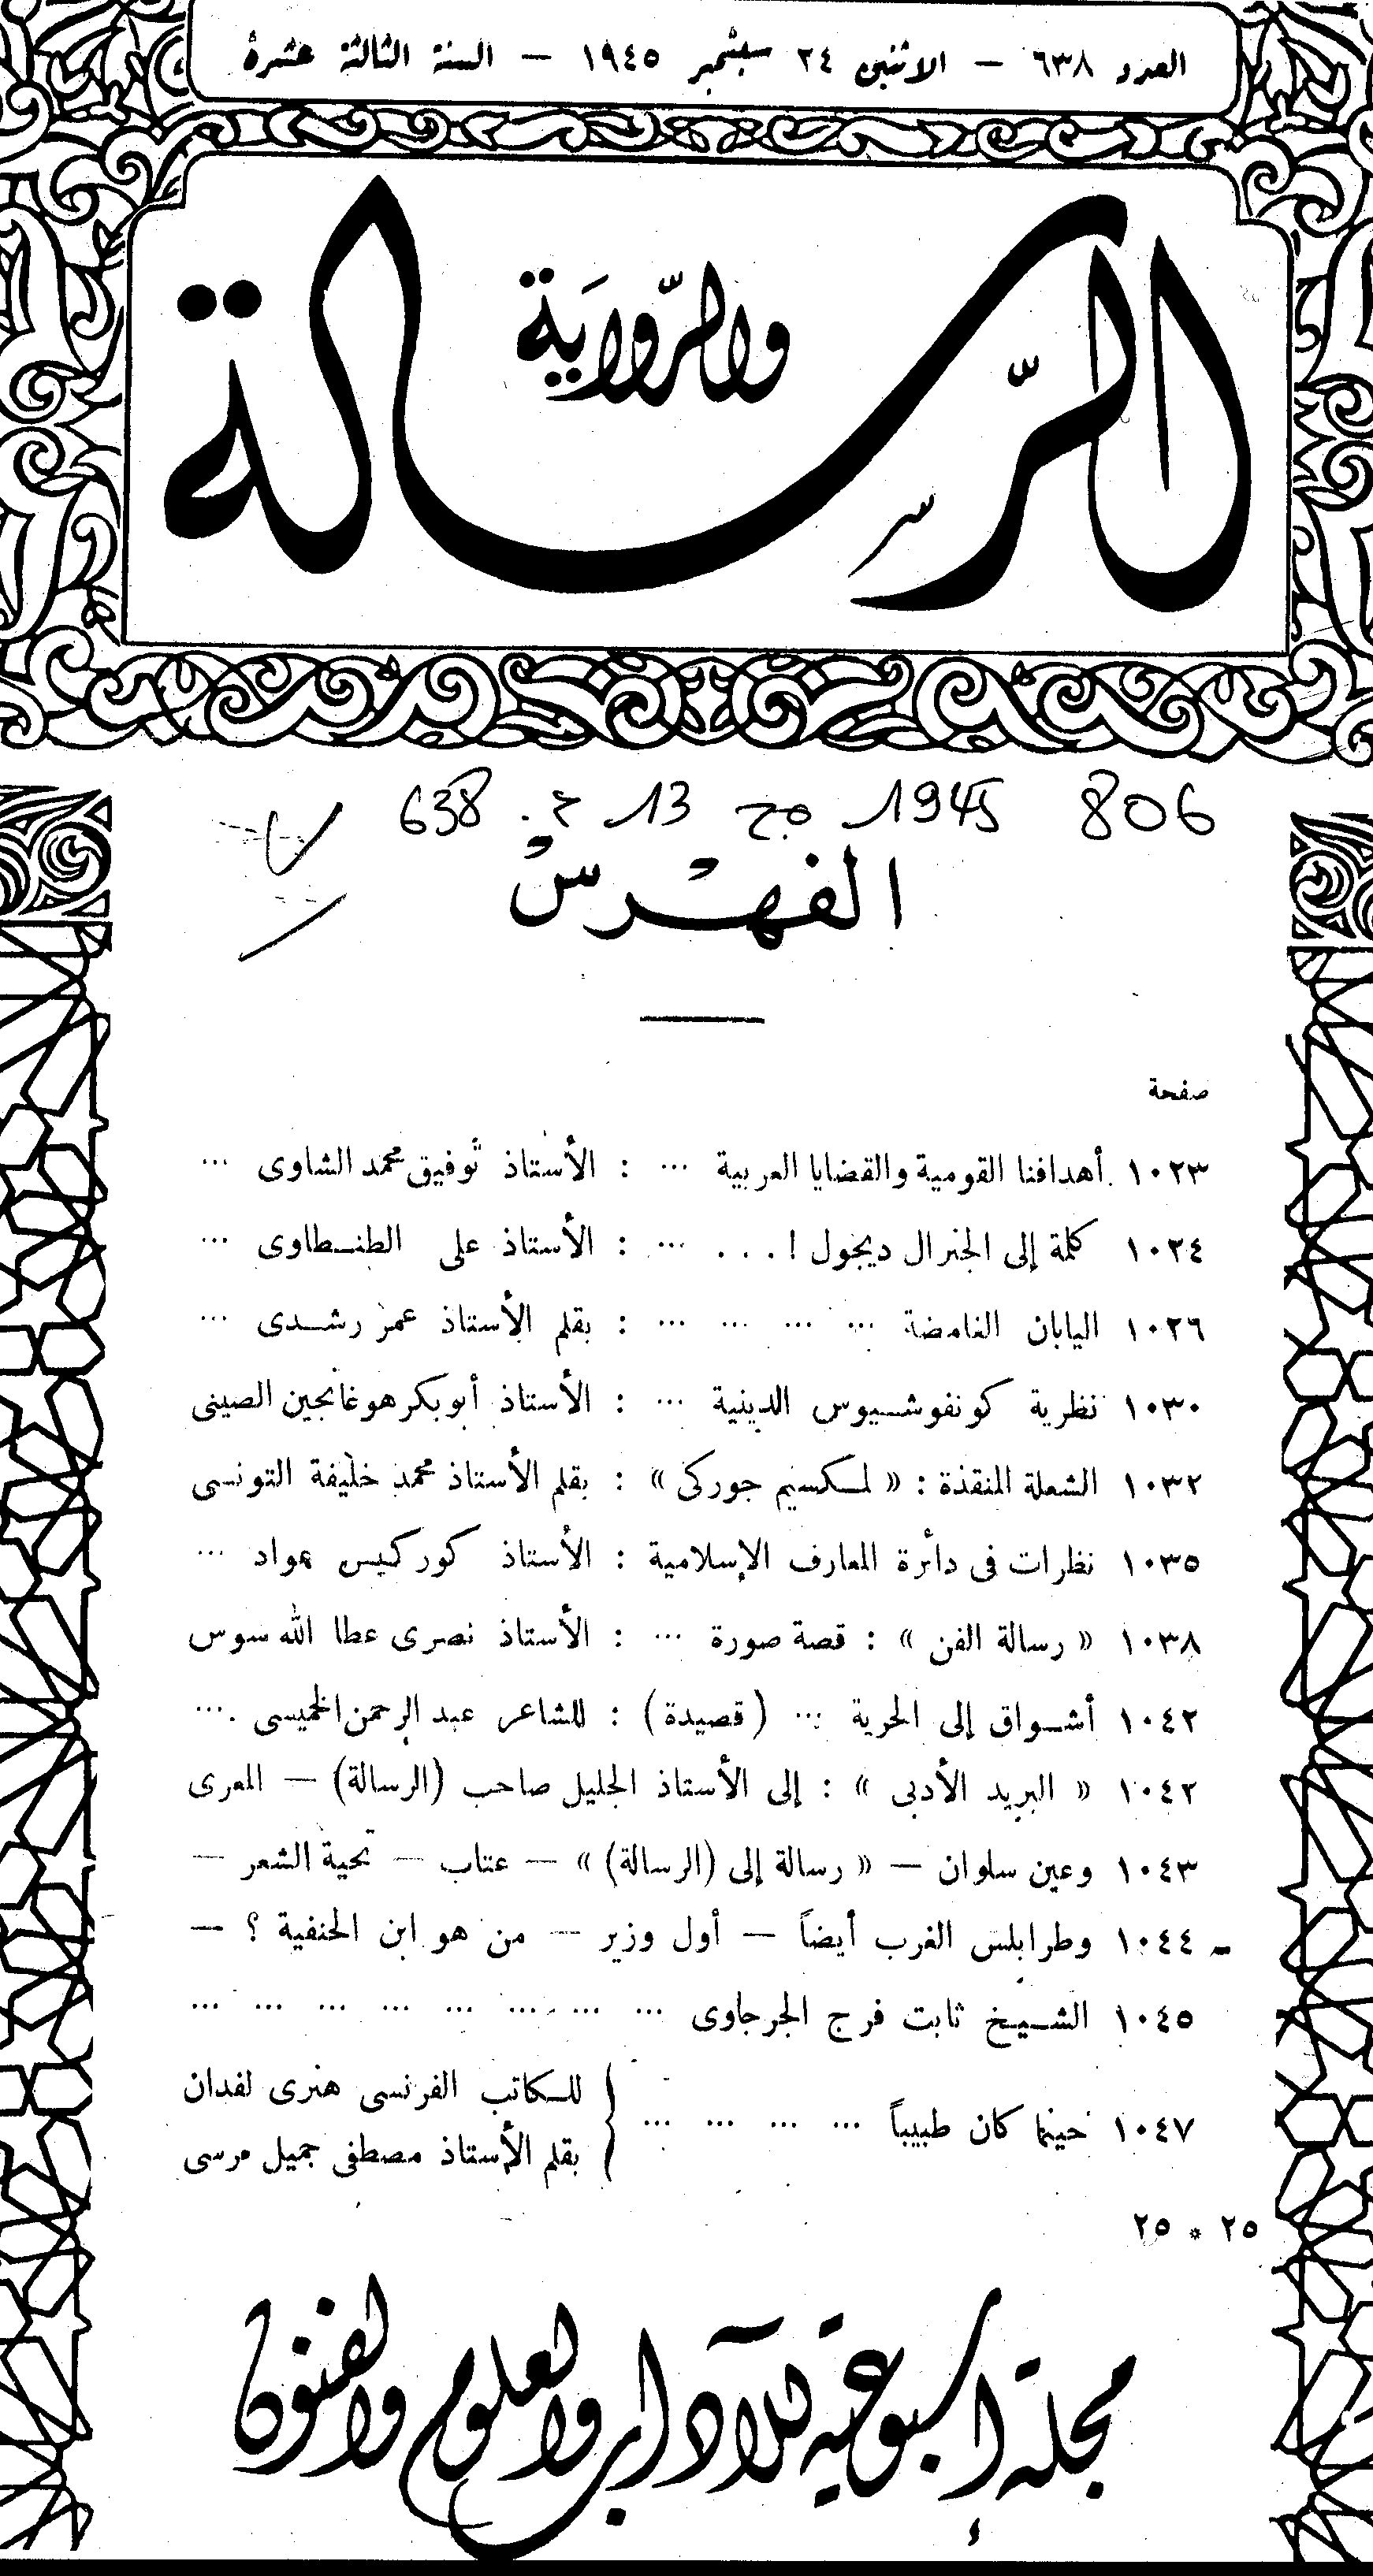 العدد ٦٣٨ — الاثنين ٢٤ سبتمبر ١٩٤٥ — السنة الثالثة عشرة
الرسالة
والرواية
638 ع. 13 مج 1945 806
الفهرس
صفحة
١٠٢٣ أهدافنا القومية والقضايا العربية ... : الأستاذ توفيق محمد الشاوى ...
١٠٢٤ كلمة إلى الجنرال ديجول ! . . . ... : الأستاذ على الطنطاوى ...
١٠٢٦ اليابان الغامضة ... ... ... ... : بقلم الأستاذ عمر رشدى ...
١٠٣٠ نظرية كونفوشيوس الدينية ... : الأستاذ أبو بكر هوغانجين الصينى
١٠٣٢ الشعلة المنقذة : « لمكسيم جوركى » : بقلم الأستاذ محمد خليفة التونسى
١٠٣٥ نظرات فى دائرة المعارف الإسلامية : الأستاذ كوركيس عواد ...
١٠٣٨ « رسالة الفن » : قصة صورة ... : الأستاذ نصرى عطا الله سوس
١٠٤٢ أشواق إلى الحرية ... (قصيدة) : للشاعر عبد الرحمن الخميسى ...
١٠٤٢ « البريد الأدبى » : إلى الأستاذ الجليل صاحب (الرسالة) — المعرى
١٠٤٣ وعين سلوان — « رسالة إلى (الرسالة) » — عتاب — تحية الشعر —
١٠٤٤ وطرابلس الغرب أيضاً — أول وزير — من هو ابن الحنفية ؟ —
١٠٤٥ الشيخ ثابت فرج الجرجاوى ... ... ... ... ... ... ... ...
١٠٤٧ حينما كان طبيباً ... ... ... ... { للكاتب الفرنسى هنرى لفدان
بقلم الأستاذ مصطفى جميل مرسى
٢٥ * ٢٥
مجلة أسبوعية للآداب والعلوم والفنون